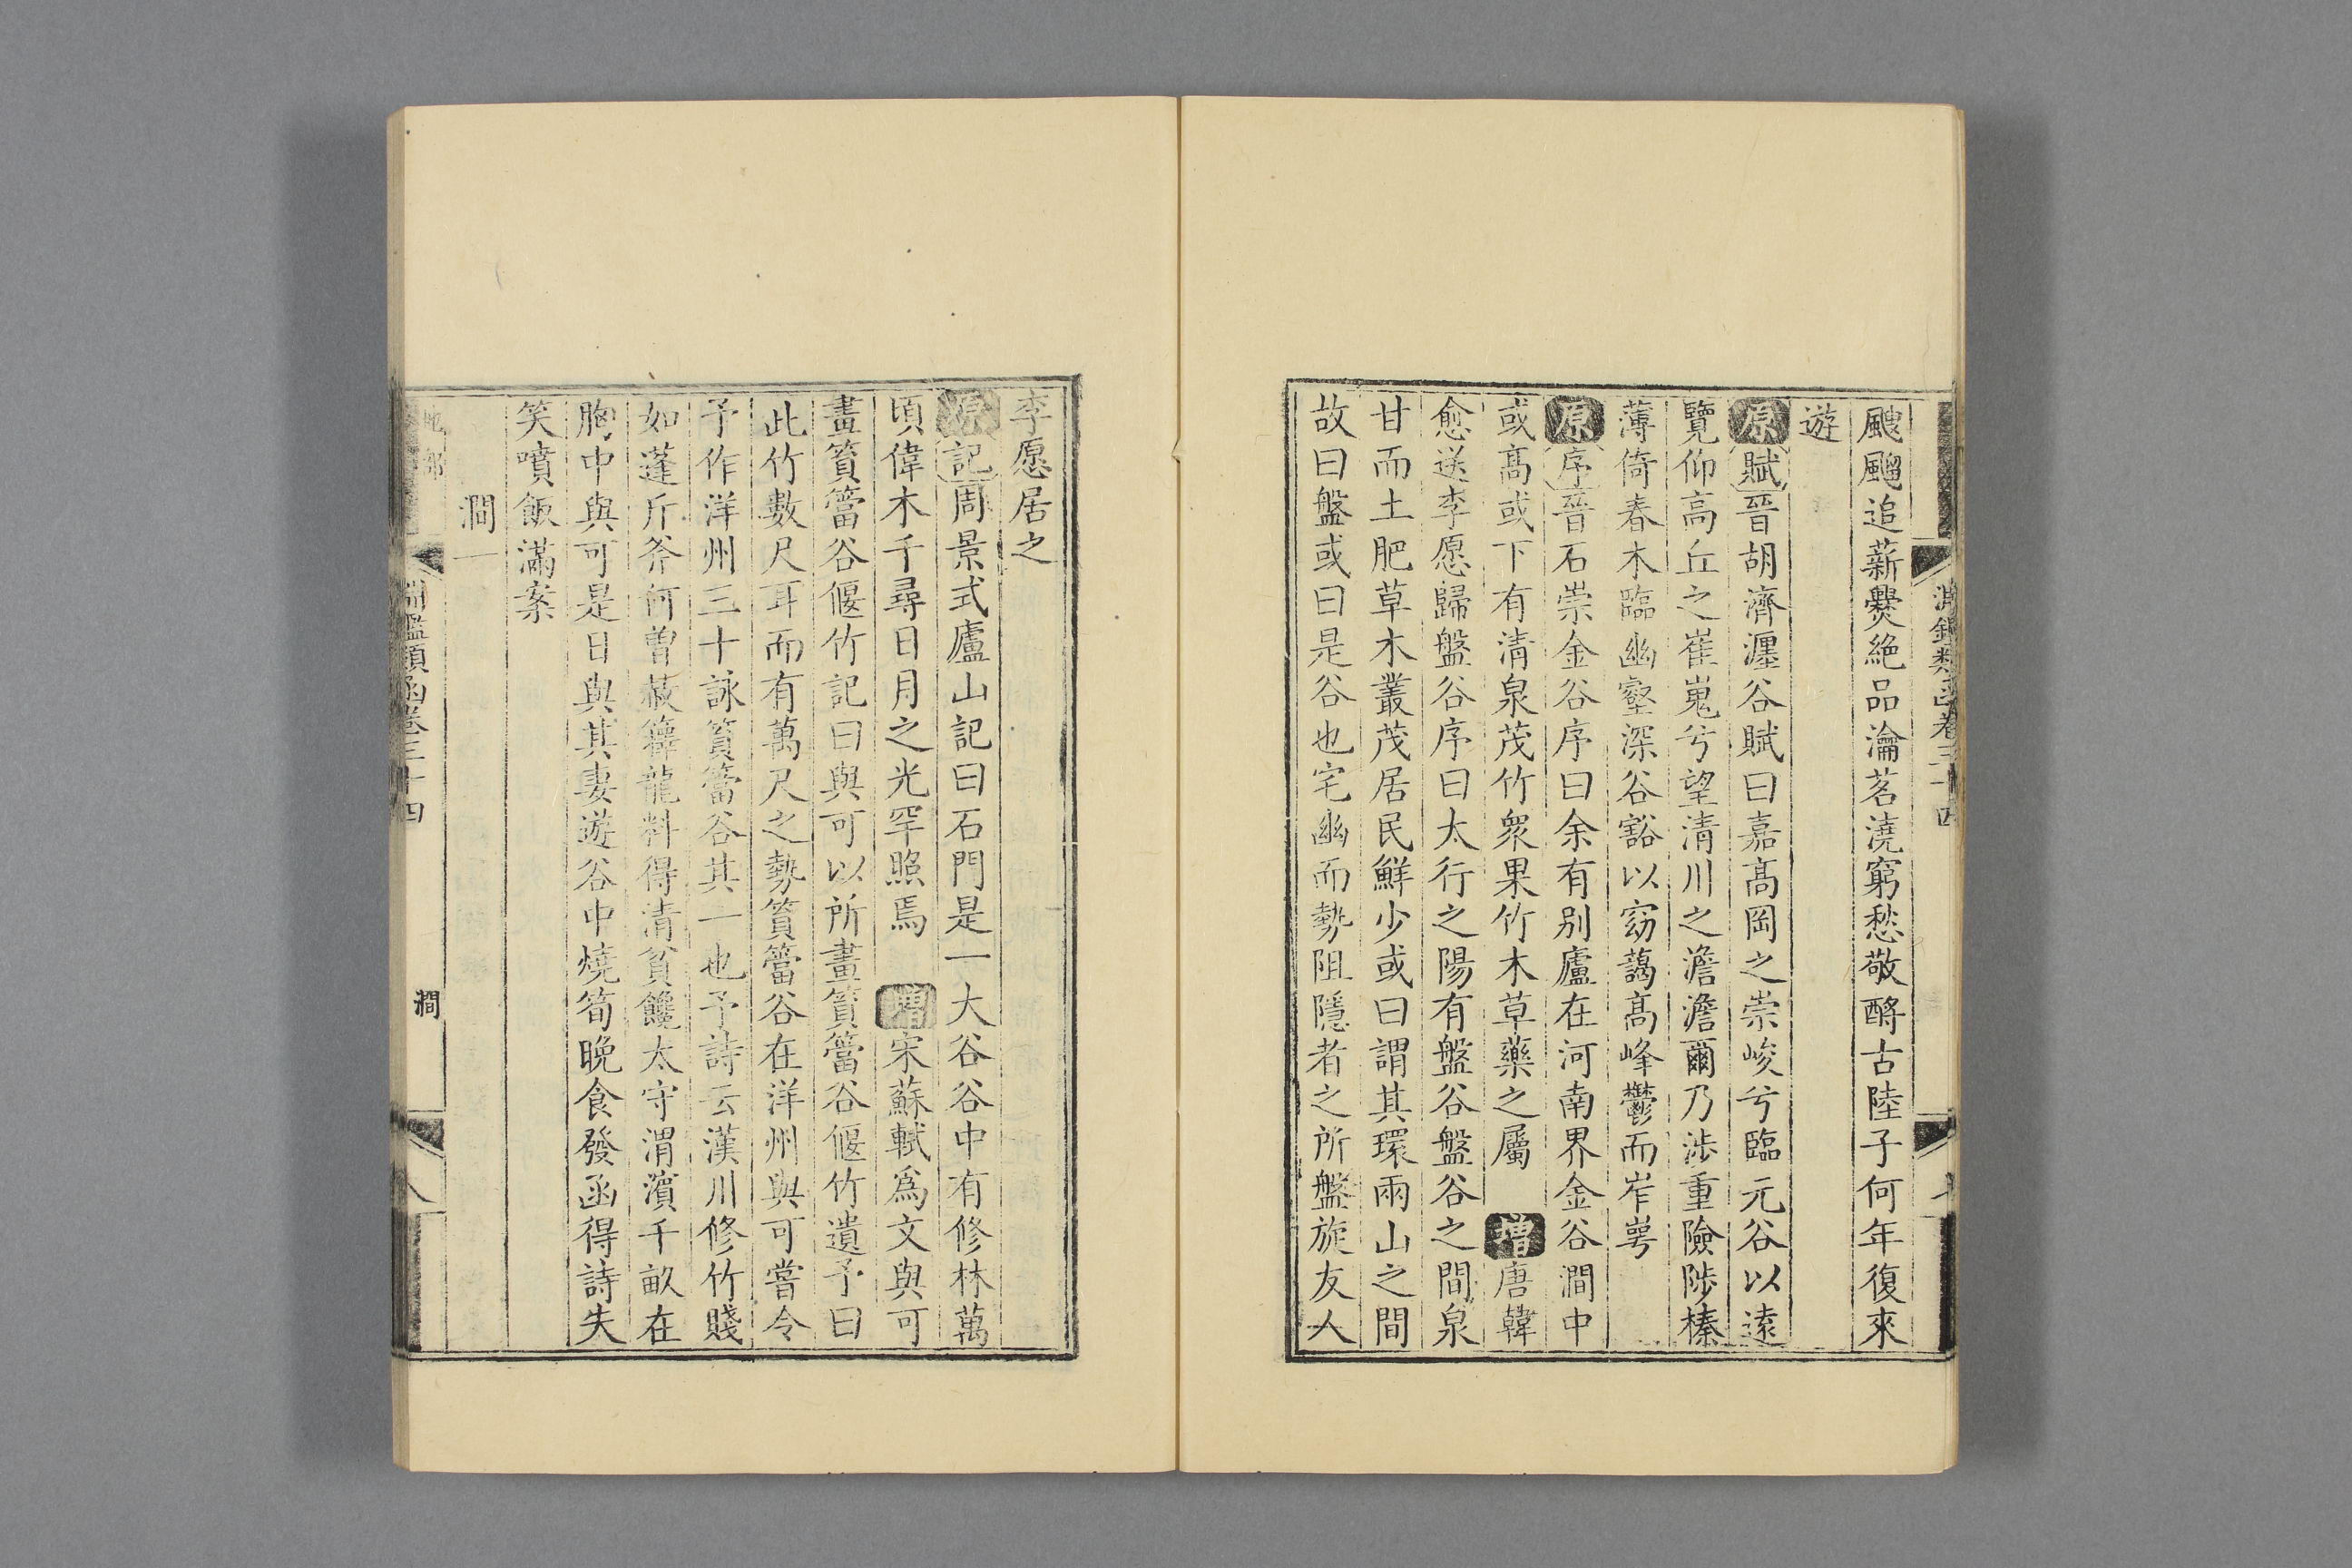 颼飀追薪㸑絶品瀹茗澆窮愁敬酹古陸子何年復來
遊
原賦晉胡濟瀍谷賦曰嘉高岡之崇峻兮臨元谷以遠
覽仰高丘之崔嵬兮望清川之澹澹爾乃涉重險陟榛
薄倚春木臨幽壑深谷豁以窈藹高峰鬱而岝崿
原序晉石崇金谷序曰余有别廬在河南界金谷澗中
或高或下有清泉茂竹衆果竹木草藥之屬 增唐韓
愈送李愿歸盤谷序曰太行之陽有盤谷盤谷之間泉
甘而土肥草木叢茂居民鮮少或曰謂其環兩山之間
故曰盤或曰是谷也宅幽而勢阻隱者之所盤旋友人
李愿居之
原記周景式廬山記曰石門是一大谷谷中有修林萬
頃偉木千尋日月之光罕照焉 增宋蘇軾為文與可
畫篔簹谷偃竹記曰與可以所畫篔簹谷偃竹遺予曰
此竹數尺耳而有萬尺之勢篔簹谷在洋州與可嘗令
予作洋州三十詠篔簹谷其一也予詩云漢川修竹賤
如蓬斤斧何曾赦籜龍料得清貧饞太守渭濱千畝在
胸中與可是日與其妻遊谷中燒筍晚食發函得詩失
笑噴飯滿案
澗一
地部
淵鑑類函卷三十四
澗
八
淵鑑類函卷三十四